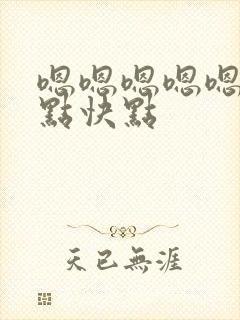 嗯嗯嗯嗯嗯
點快點
天已無涯